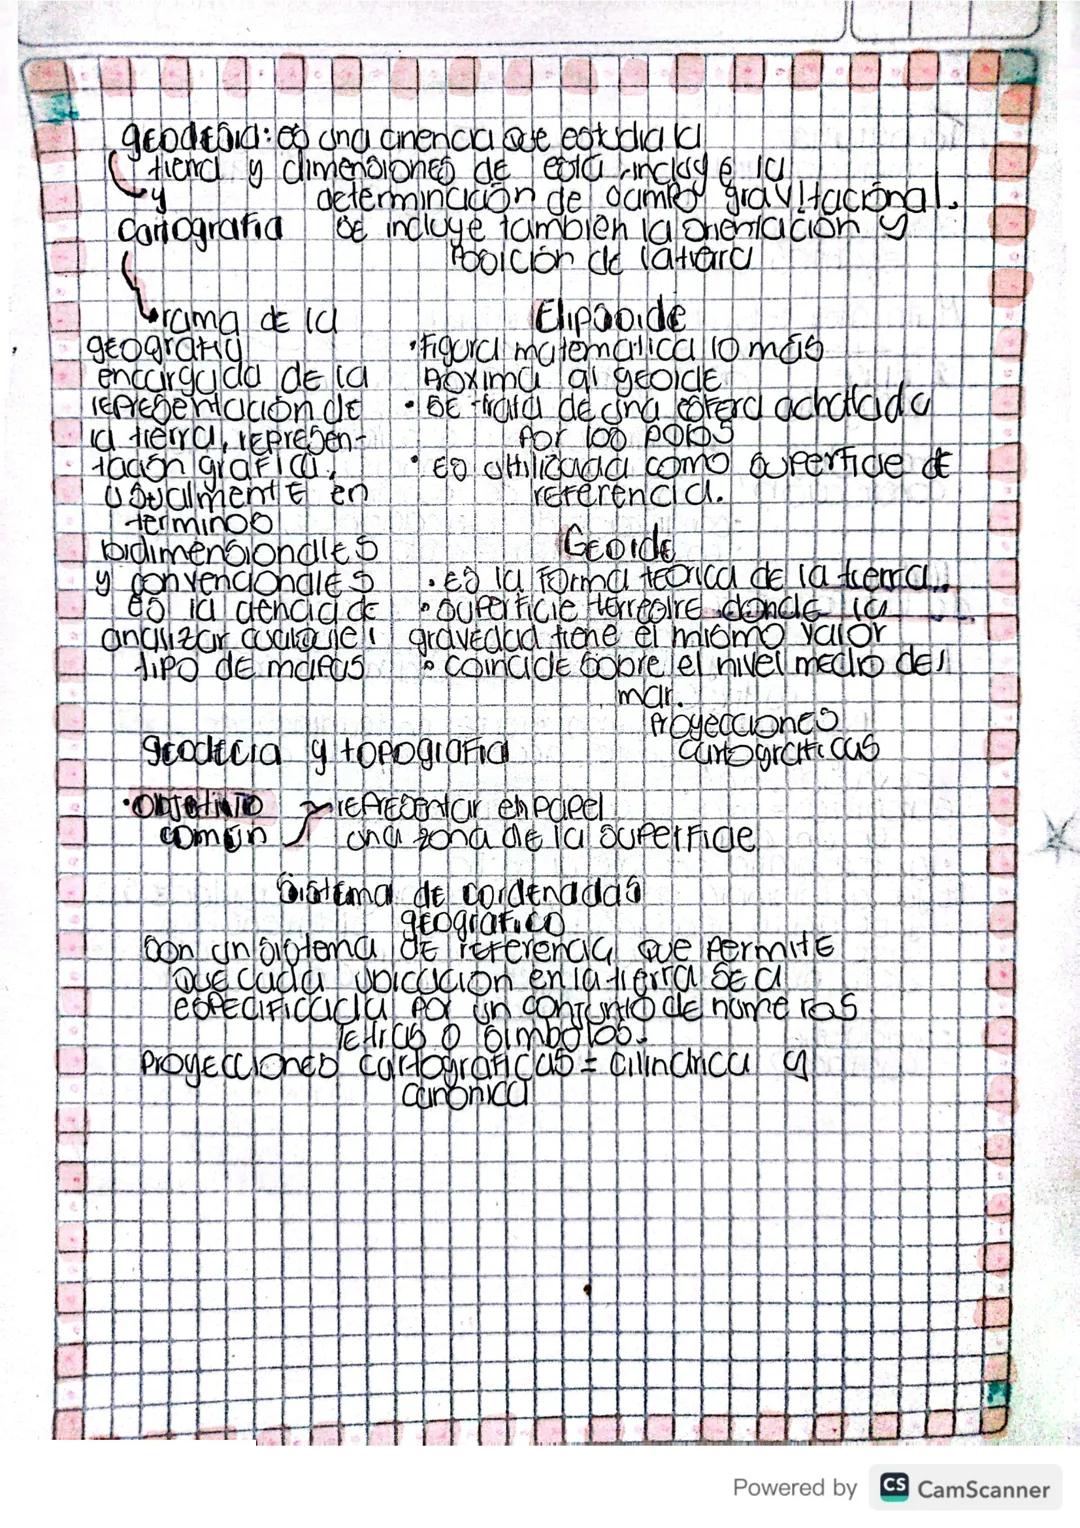 geodesia: es una cinencia que estudia la
tierra y dimensiones de esta incluye la
y determinación de ocampo gravitacional.
cartografia se incluye tambien la orientación y
posición de la tierra
rama de la
geografia
encargada de la
representación de
la tierra, represen-
tación grafica,
usualmente en
terminos
bidimensionales
y convencionales
es la ciencia de
analizar cualquier
tipo de mapas
Elipsoide
• Figura matematica lo más
proxima al geoide
• se trata de una esfera achatada
por los polos
• es utilizada como superficie de
referencia.
Geoide
• es la forma teorica de la tierra
• superficie terrestre donde la
gravedad tiene el mismo valor
• coincide sobre el nivel medio del
mar.
Proyecciones
cartograficas
geodecia y topografia
• objetivo representar en papel
común una zona de la superficie
Sistema de cordenadas
geografico
son un sistema de referencia que permite
que cada ubicación en la tierra sea
especificada por un conjunto de numeros
letras o simbolos.
proyecciones cartograficas = cilindrica y
canonica
Powered by CS CamScanner